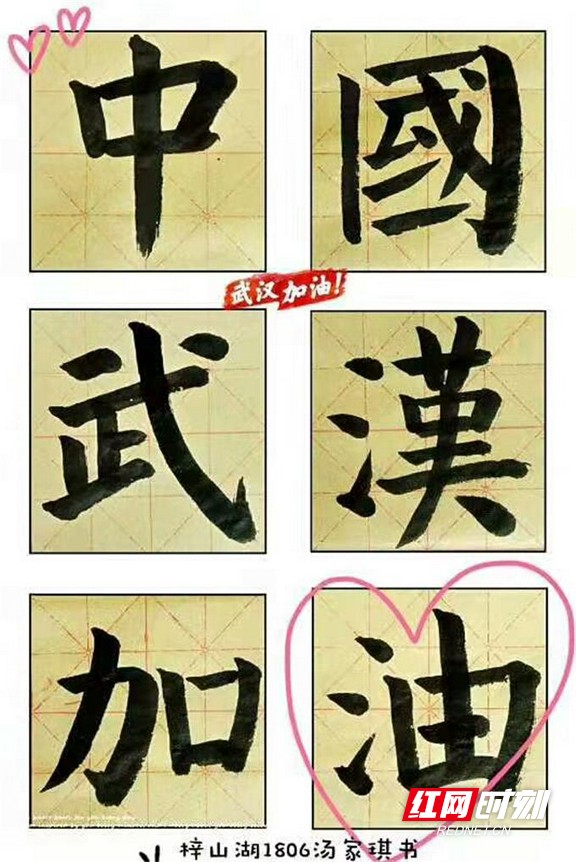 中國
武汉加油!
武漢
加油
红网时刻
REDNET.CN
梓山湖1806汤家琪书